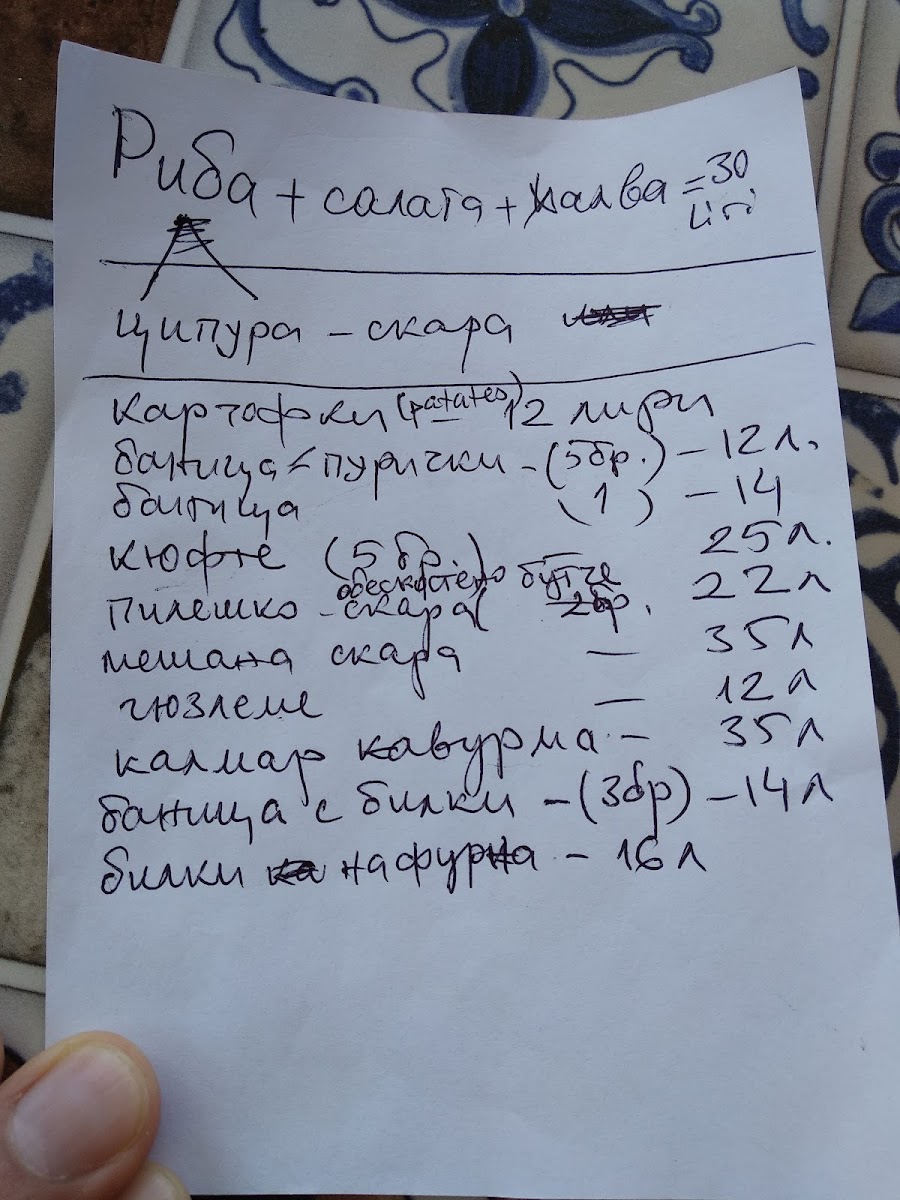 Риба + салата + халва = 30
Liri
ципура - скара
картофки (patates) 12 лири
баница < пурички - (5бр.) - 12л.
баница (1) - 14
кюфте (5 бр.) 25л.
обескостено бутче
пилешко - скара( 2бр. 22л
мешана скара — 35л
гюзлеме — 12л
калмар кавурма - 35л
баница с билки - (3бр) - 14л
билки на фурна - 16л